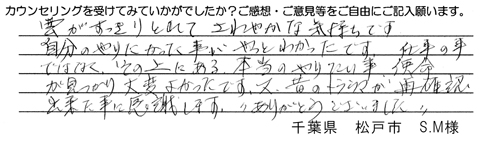 カウンセリングを受けてみていかがでしたか？ご感想・ご意見等をご自由にご記入願います。
雲がすっきりとれて さわやかな気持ちです
自分のやりたかった事が やっとわかったです。仕事の事
ではなく、その上にある、本当のやりたい事、使命
が見つかり大変よかったです。又、昔のトラウマが再確認
出来た事に感謝します。"ありがとうございました"
千葉県 松戸市 S.M様